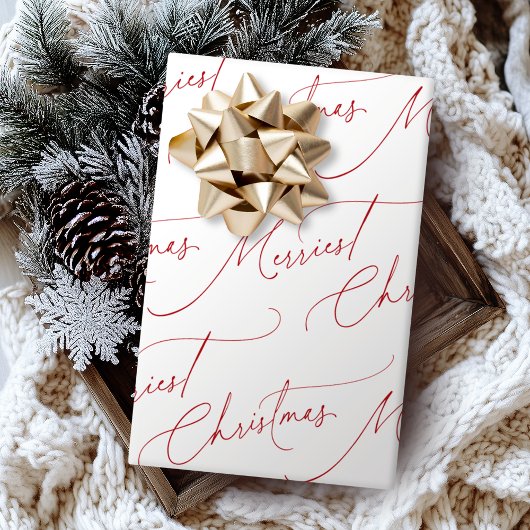 Merriest
Christmas M
stmas Merriest
Christ
rriest
Christmas M